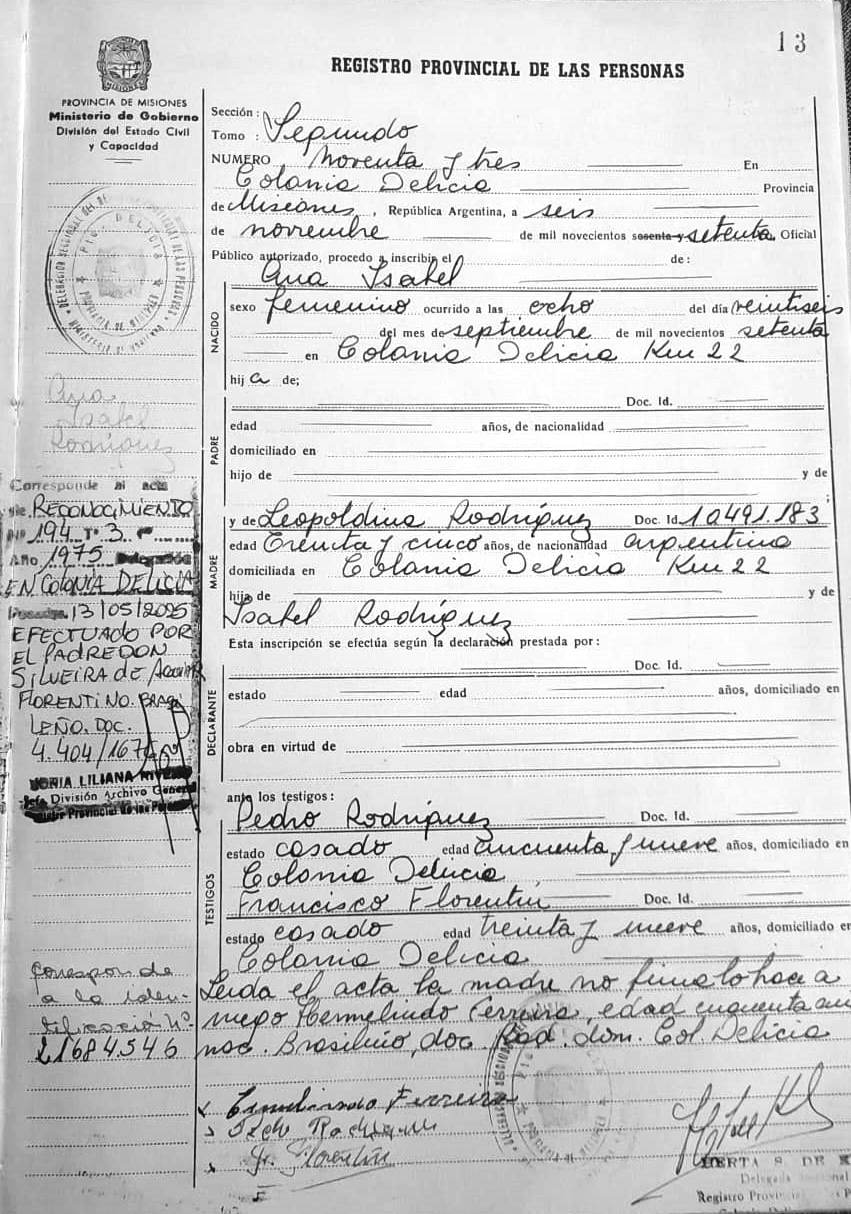 13
REGISTRO PROVINCIAL DE LAS PERSONAS
MISIONES
PROVINCIA DE MISIONES
Ministerio de Gobierno
División del Estado Civil
y Capacidad
Ana
Isabel
Rodríguez
Corresponde al acta
de RECONOCIMIENTO
Nº 194 Tº 3.
Año 1975
EN COLONIA DELICIA
13/05/2025
EFECTUADO POR
EL PADRE DON
SILVEIRA DE
FLORENTINO. BRASI
LEÑO. DOC.
4.404/167
SONIA LILIANA
Jefe División Archivo General
Registro Provincial de las Personas
Correspon de
a la iden-
tificació Nº
21684.546
Sección:
Tomo: Segundo
NUMERO Noventa y tres En
Colonia Delicia Provincia
de Misiones, República Argentina, a seis
de noviembre de mil novecientos sesenta y setenta, Oficial
Público autorizado, procedo a inscribir el de:
Ana Isabel
NACIDO
sexo femenino ocurrido a las ocho del día veintiseis
del mes de septiembre de mil novecientos setenta
en Colonia Delicia Km 22
hija de;
PADRE
Doc. Id.
edad años, de nacionalidad
domiciliado en
hijo de y de
;
MADRE
y de Leopoldina Rodríguez Doc. Id. 10491.183
edad treinta y cinco años, de nacionalidad argentina
domiciliada en Colonia Delicia Km 22
hija de y de
Isabel Rodríguez
Esta inscripción se efectúa según la declaración prestada por:
DECLARANTE
Doc. Id.
estado edad años, domiciliado en
obra en virtud de
ante los testigos:
TESTIGOS
Pedro Rodríguez Doc. Id.
estado casado edad cincuenta y nueve años, domiciliado en
Colonia Delicia
Francisco Florentin Doc. Id.
estado casado edad treinta y nueve años, domiciliado en
Colonia Delicia
Leída el acta la madre no firma lo hace a
ruego Hermelindo Ferreira, edad cuarenta
nac. Brasileño, doc. Rad. dom. Col. Delicia
Ferreira
Florentin
HERTA S. DE
Delegada
Registro